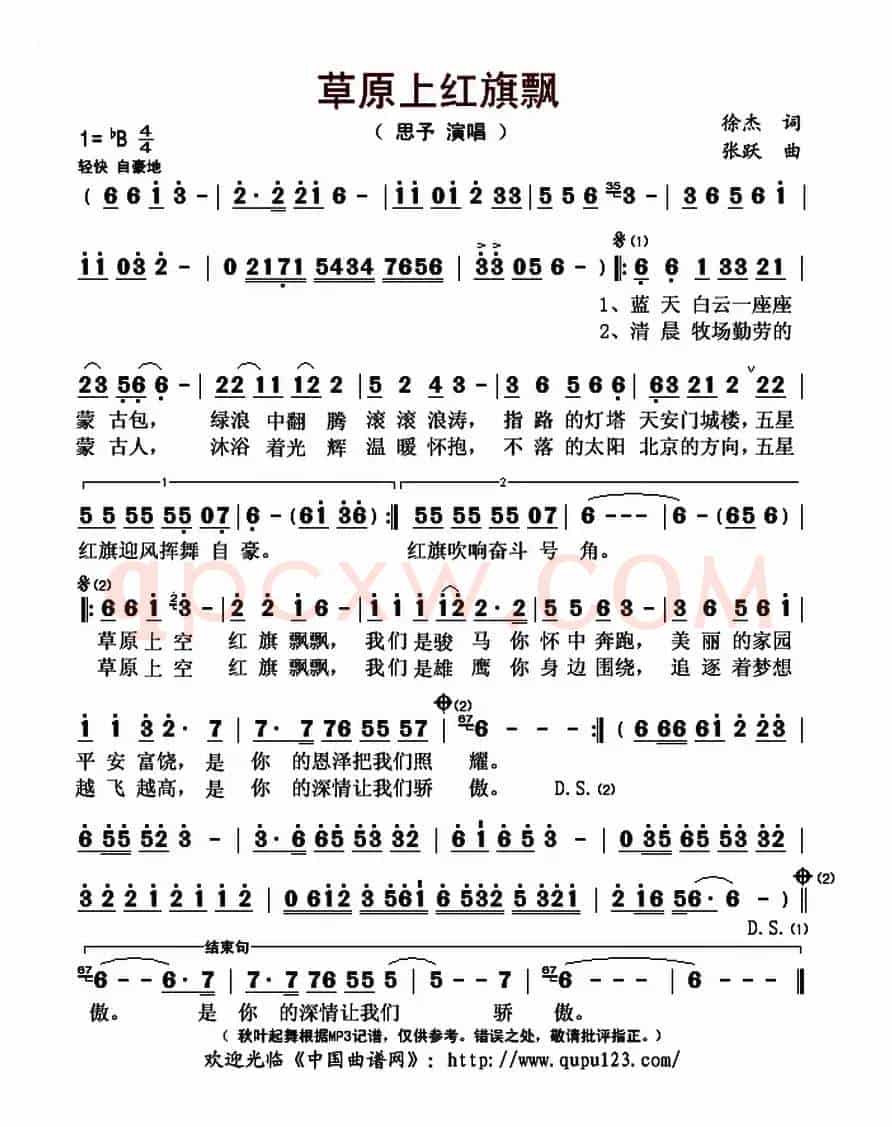 草原上红旗飘
1=♭B 4/4
（ 思予 演唱 ）
徐杰 词
张跃 曲
轻快 自豪地
( 6 6 1 3 - | 2· 2 2 1 6 - | 1 1 0 1 2 3 3 | 5 5 6 35 3 - | 3 6 5 6 1 |
1 1 0 3 2 - | 0 2171 5434 7656 | 3 3 0 5 6 - ) |: 6 6 1 33 21 |
(1)
1、蓝 天 白云一座座
2、清 晨 牧场勤劳的
23 56 6 - | 22 11 12 2 | 5 2 4 3 - | 3 6 5 6 6 | 63 21 2 ∨ 22 |
蒙 古包， 绿浪 中翻 腾 滚 滚 浪涛， 指 路 的灯塔 天安门城楼，五星
蒙 古人， 沐浴 着光 辉 温 暖 怀抱， 不 落 的太阳 北京的方向，五星
1 2
5 5 55 55 07 | 6 - (61 36) :| 55 55 55 07 | 6 - - - | 6 - (65 6) |
红旗迎风挥舞 自 豪。 红旗吹响奋斗 号 角。
(2)
|: 6 6 1 2 3 - | 2 2 1 6 - | 1 1 1 12 2·2 | 5 5 6 3 - | 3 6 56 1 |
草原上 空 红 旗 飘飘， 我 们 是骏 马 你 怀中 奔跑， 美 丽 的家园
草原上 空 红 旗 飘飘， 我 们 是雄 鹰 你 身边 围绕， 追 逐 着梦想
(2)
1 1 3 2· 7 | 7· 7 76 55 57 | 67 6 - - - :| ( 6 66 61 2 23 |
平 安 富饶，是 你 的恩泽把我们照 耀。
越 飞 越高，是 你 的深情让我们骄 傲。 D.S.(2)
6 55 52 3 - | 3· 6 65 53 32 | 6 1 6 5 3 - | 0 35 65 53 32 |
(2)
3 2 21 2 1 12 | 0612 3561 6532 5321 | 2 16 56· 6 - ) ||
D.S.(1)
结束句
67 6 - 6· 7 | 7· 7 76 55 5 | 5 - - 7 | 67 6 - - - | 6 - - - ‖
傲。 是 你 的深情让我们 骄 傲。
（ 秋叶起舞根据MP3记谱，仅供参考。错误之处，敬请批评指正。）
欢迎光临《中国曲谱网》：http://www.qupu123.com/
qpcxw.COM